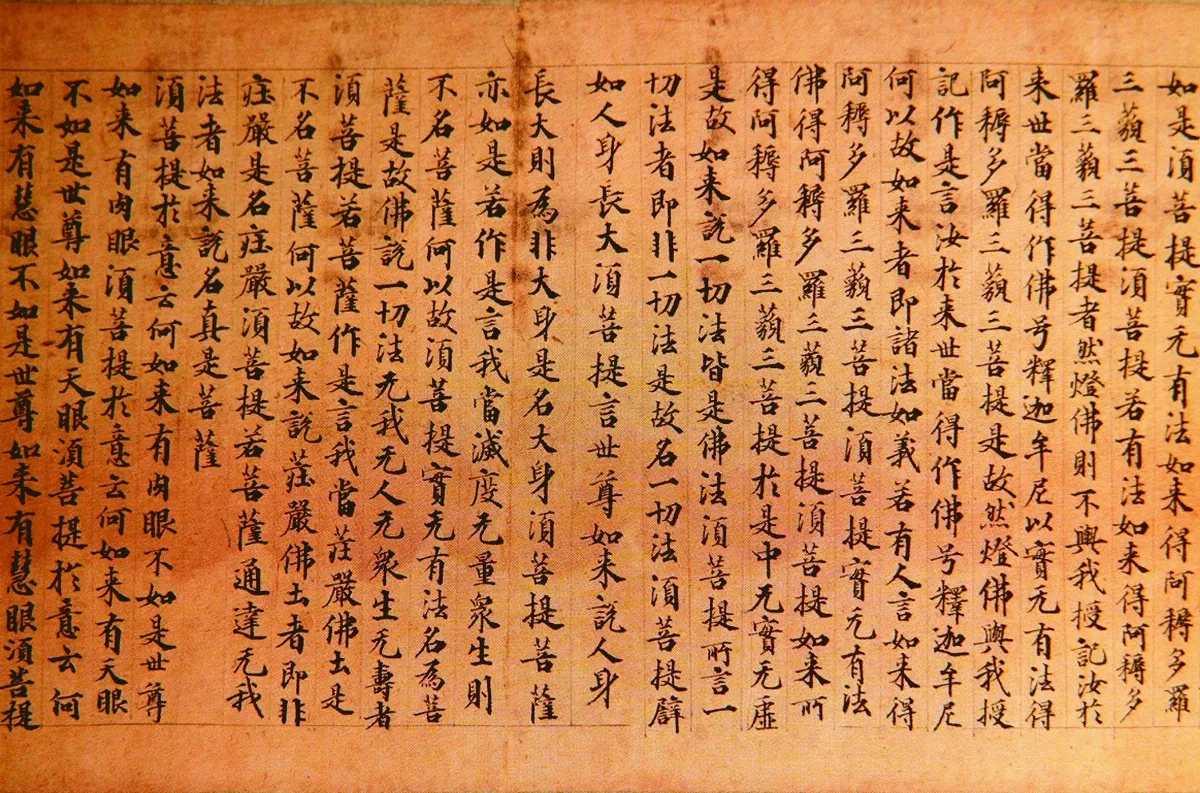 如是須菩提實无有法如来得阿耨多羅
三藐三菩提須菩提若有法如来得阿耨多
羅三藐三菩提者然燈佛則不與我授記汝於
来世當得作佛号釋迦牟尼以實无有法得
阿耨多羅三藐三菩提是故然燈佛與我授
記作是言汝於来世當得作佛号釋迦牟尼
何以故如来者即諸法如義若有人言如来得
阿耨多羅三藐三菩提須菩提實无有法
佛得阿耨多羅三藐三菩提須菩提如来所
得阿耨多羅三藐三菩提於是中无實无虛
是故如来說一切法皆是佛法須菩提所言一
切法者即非一切法是故名一切法須菩提譬
如人身長大須菩提言世尊如来說人身
長大則為非大身是名大身須菩提菩薩
亦如是若作是言我當滅度无量衆生則
不名菩薩何以故須菩提實无有法名為菩
薩是故佛說一切法无我无人无衆生无壽者
須菩提若菩薩作是言我當莊嚴佛土是
不名菩薩何以故如来說莊嚴佛土者即非
莊嚴是名莊嚴須菩提若菩薩通達无我
法者如来說名真是菩薩
須菩提於意云何如来有肉眼不如是世尊
如来有肉眼須菩提於意云何如来有天眼
不如是世尊如来有天眼須菩提於意云何
如来有慧眼不如是世尊如来有慧眼須菩提